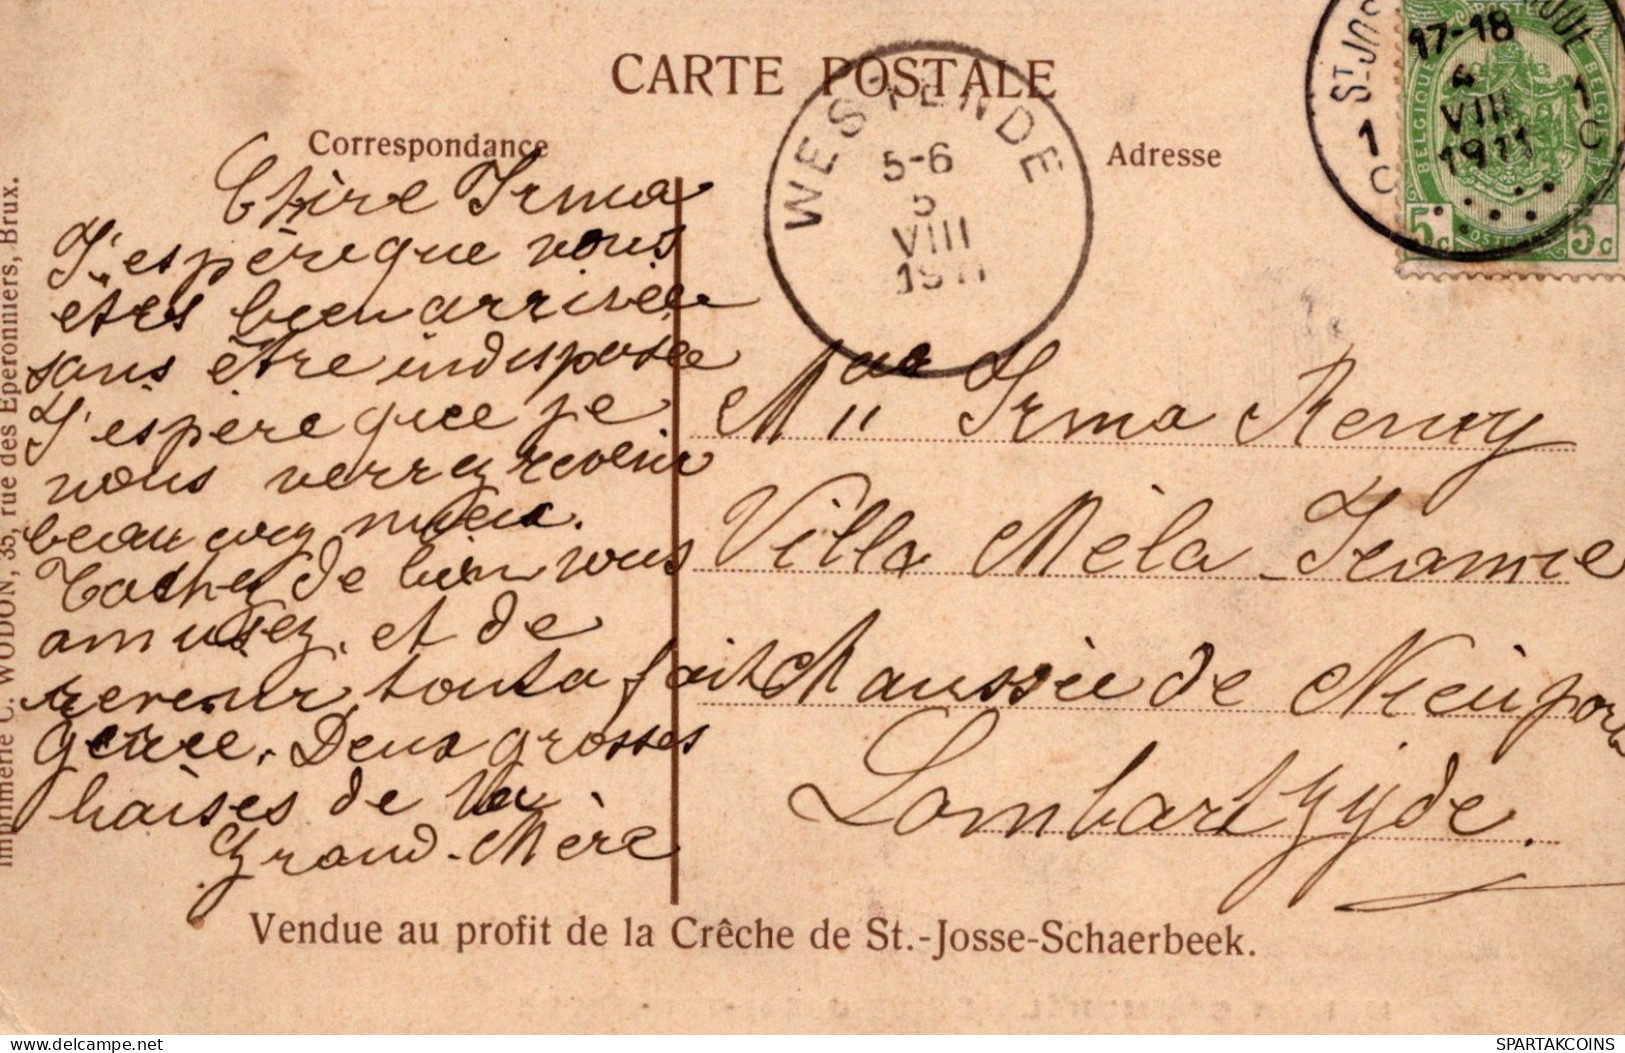 CARTE POSTALE
Correspondance
Adresse
WESTENDE
5-6
5
VIII
1911
ST-JOS
17-18
4
VIII
1911
1 C
1 C
POSTE
BELGIQUE
BELGIË
5c
5c
Chère Irma
J'espère que vous
êtes bien arrivée
sans être indisposée
J'espère que je
vous verrez revenir
beaucoup mieux.
Tachez de bien vous
amusez, et de
revenir tout a fait
gerie. Deux grosses
baises de la
Grand-Mère
Melle Irma Remy
Villa Mèla-Jeanne
Chaussée de Nieuport
Lombartzyde.
Imprimerie C. WODON, 35, rue des Eperonniers, Brux.
Vendue au profit de la Crêche de St.-Josse-Schaerbeek.
SPARTAKCOINS
delcampe.net